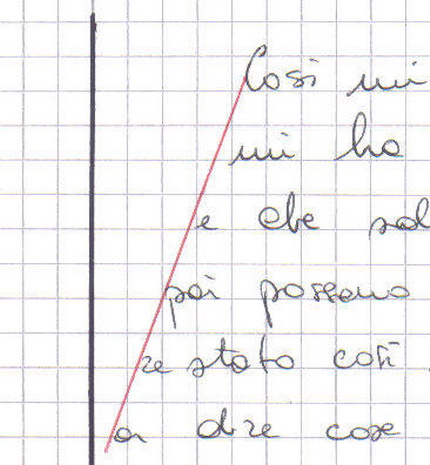 Così mi
mi ha
e che sol
poi possono
re stato così
a dire cose